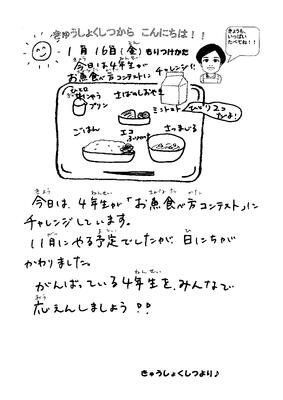 きゅうしょくしつから こんにちは!!
きょうも、
いっぱい
たべてね!!
1月16日(金)もりつけかた
今日は4年生が
お魚食べ方コンテストに
チャレンジ!
プリン
さばのしおやき
ミニトマト
ひとり2コ
だよ!
ごはん
エコ
ふりかけ
さつまじる
今日は、4年生が「お魚食べ方コンテスト」に
チャレンジしています。
11月にやる予定でしたが、日にちが
かわりました。
がんばっている4年生を、みんなで
応えんしましょう!!
きゅうしょくしつより♪